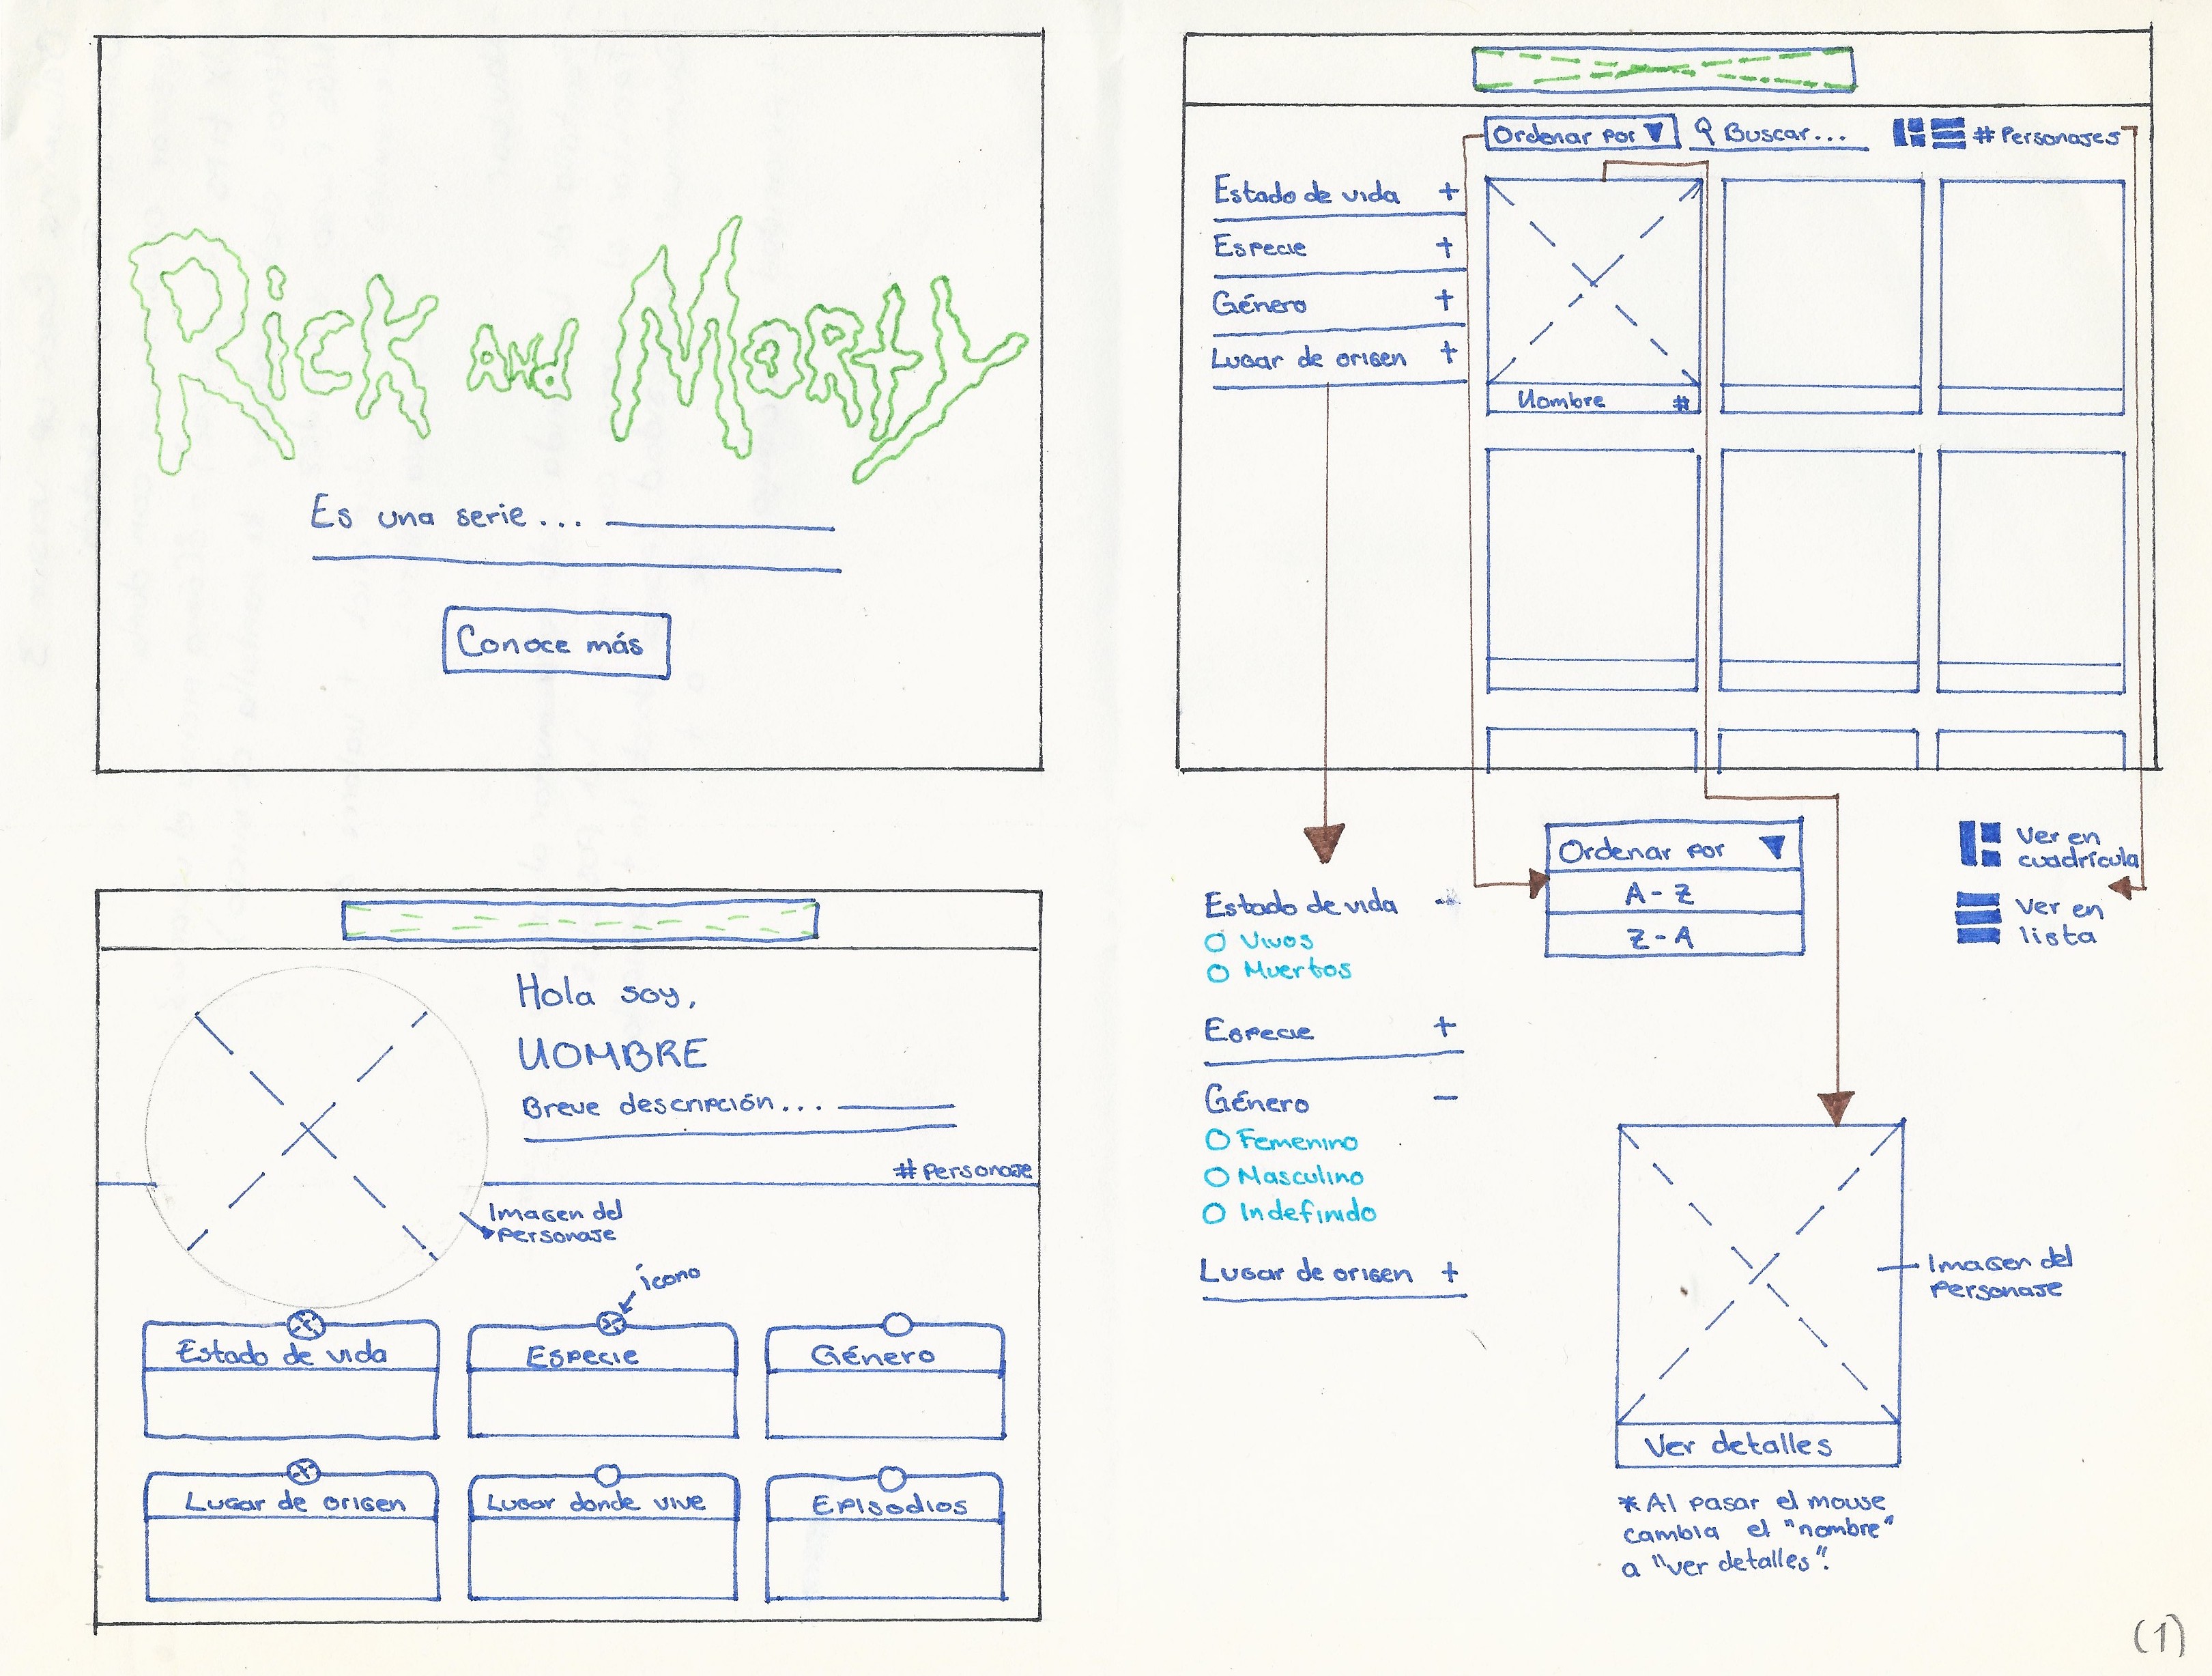 Rick and Morty
Es una serie...
Conoce más
Ordenar por
Buscar...
# Personajes
Estado de vida +
Especie +
Género +
Lugar de origen +
Nombre #
Ordenar por
A - Z
Z - A
Ver en
cuadrícula
Ver en
lista
Estado de vida -
Vivos
Muertos
Especie +
Género -
Femenino
Masculino
Indefinido
Lugar de origen +
Imagen del
Personaje
Ver detalles
*Al pasar el mouse
cambia el "nombre"
a "ver detalles".
Hola soy,
NOMBRE
Breve descripción...
# Personaje
Imagen del
Personaje
ícono
Estado de vida
Especie
Género
Lugar de origen
Lugar donde vive
Episodios
(1)